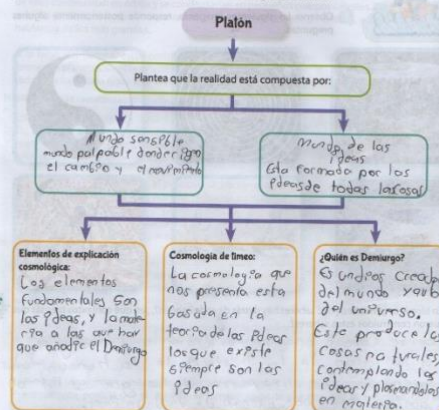 Platón
Plantea que la realidad está compuesta por:
Mundo sensible
mundo palpable donde rige
el cambio y el movimiento
mundo de las
ideas
Esta formada por las
ideas de todas las cosas
Elementos de explicación
cosmológica:
Los elementos
fundamentales son
las ideas, y la mate-
ria a las que hay
que añadir el Demiurgo
Cosmología de timeo:
La cosmología que
nos presenta esta
basada en la
teoria de las ideas
los que existe
siempre son las
ideas
¿Quién es Demiurgo?
Es un dios creador
del mundo y autor
del universo.
Este produce las
cosas naturales,
contemplando las
ideas y plasmandolas
en materia.